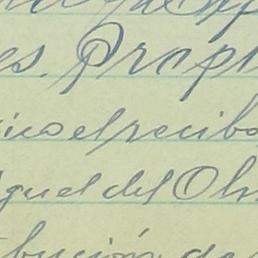 es. Prop
ico el recibo
guel del Ol
bución de